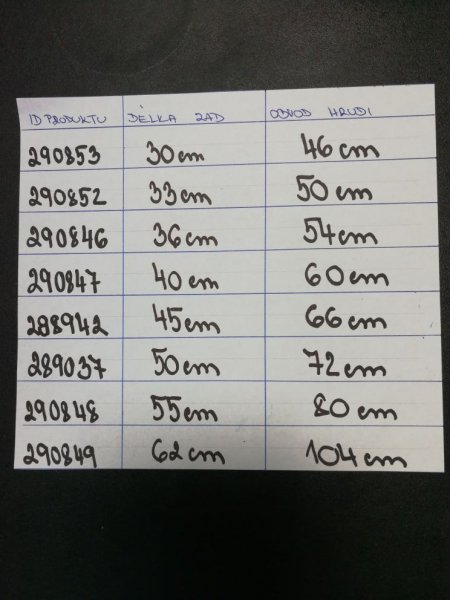 ID PRODUKTU DÉLKA ZAD OBVOD HRUDI
290853 30 cm 46 cm
290852 33 cm 50 cm
290846 36 cm 54 cm
290847 40 cm 60 cm
288942 45 cm 66 cm
289037 50 cm 72 cm
290848 55 cm 80 cm
290849 62 cm 104 cm